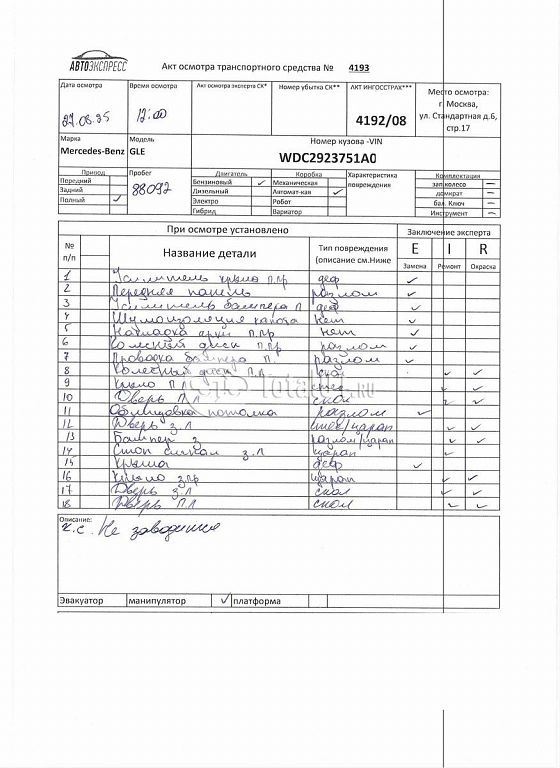 АВТОЭКСПРЕСС
Акт осмотра транспортного средства № 4193
Дата осмотра
Время осмотра
Акт осмотра эксперта СК*
Номер убытка СК**
АКТ ИНГОССТРАХ***
Место осмотра:
г. Москва,
ул. Стандартная д.6,
стр.17
12:00
4192/08
Марка
Модель
Номер кузова -VIN
Mercedes-Benz
GLE
WDC2923751A0
Привод
Пробег
Двигатель
Коробка
Характеристика
повреждения
Комплектация
Передний
88092
Бензиновый ✓
Механическая
зап колесо –
Задний
Дизельный
Автомат-кая ✓
домкрат –
Полный ✓
Электро
Робот
бал. Ключ –
Гибрид
Вариатор
Инструмент –
При осмотре установлено
Заключение эксперта
№ п/п
Название детали
Тип повреждения
(описание см.Ниже
E I R
Замена Ремонт Окраска
1 Усилитель крыла п.пр деф ✓
2 Передняя панель разлом ✓
3 Усилитель бампера п деф ✓
4 Шумоизоляция капота нет ✓
5 Накладка арки п.пр нет ✓
6 диск п.пр разлом ✓
7 Проводка бампера п. разлом ✓
8 Колесный диск п.пр скол ✓
9 Крыло п.л ✓ ✓
10 Дверь п.л скол ✓ ✓
11 Облицовка потолка разлом ✓
12 Дверь з.л /царап ✓ ✓
13 Бампер з разлом/царап ✓ ✓
14 Стоп сигнал з.л царап ✓
15 Крыша деф ✓
16 Крыло з.пр царап ✓ ✓
17 Дверь з.л скол ✓ ✓
18 Дверь п.л скол ✓ ✓
Total .RU
Описание:
Не заводится
Эвакуатор
манипулятор ✓
платформа